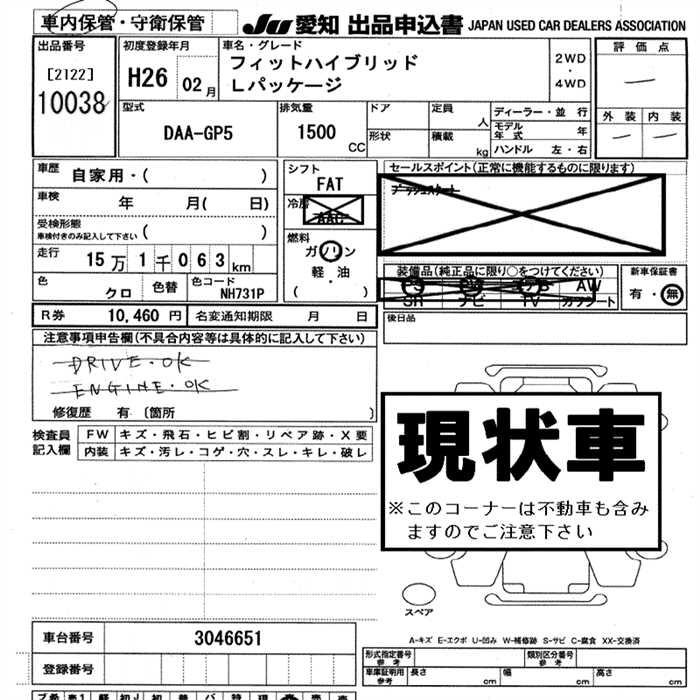 車内保管・守衛保管
JU 愛知 出品申込書 JAPAN USED CAR DEALERS ASSOCIATION
出品番号 初度登録年月 車名・グレード 評価点
[2122] H26 02月 フィットハイブリッド 2WD
10038 Lパッケージ ・ 4WD
外装 内装
型式 排気量 ドア 定員 人 ディーラー・並行
DAA-GP5 1500 CC 形状 積載 kg モデル年式 年
ハンドル 左・右
車歴 自家用・( )
シフト FAT
セールスポイント(正常に機能するものに限ります)
プッシュスタート
車検 年 月( 日)
冷房 AAC
受検形態
車検付きのみ記入して下さい ( )
燃料 ガソリン
軽・油
( )
走行 15万1千063km
装備品(純正品に限り○をつけてください) 新車保証書
PS PW エアB AW 有・無
SR ナビ TV カワシート
色 クロ 色替 色コード NH731P
R券 10,460円 名変通知期限 月 日
後日品
注意事項申告欄(不具合内容等は具体的に記入して下さい)
DRIVE・OK
ENGINE・OK
修復歴 有〔箇所 〕
検査員記入欄 FW キズ・飛石・ヒビ割・リペア跡・X要
内装 キズ・汚レ・コゲ・穴・スレ・キレ・破レ
現状車
※このコーナーは不動車も含み
ますのでご注意下さい
スペア
A-キズ E-エクボ U-凹み W-補修跡 S-サビ C-腐食 XX-交換済
車台番号 3046651
登録番号
形式指定番号 参考 類別区分番号 参考
車庫証明用 参考 長さ cm 幅 cm 高さ cm